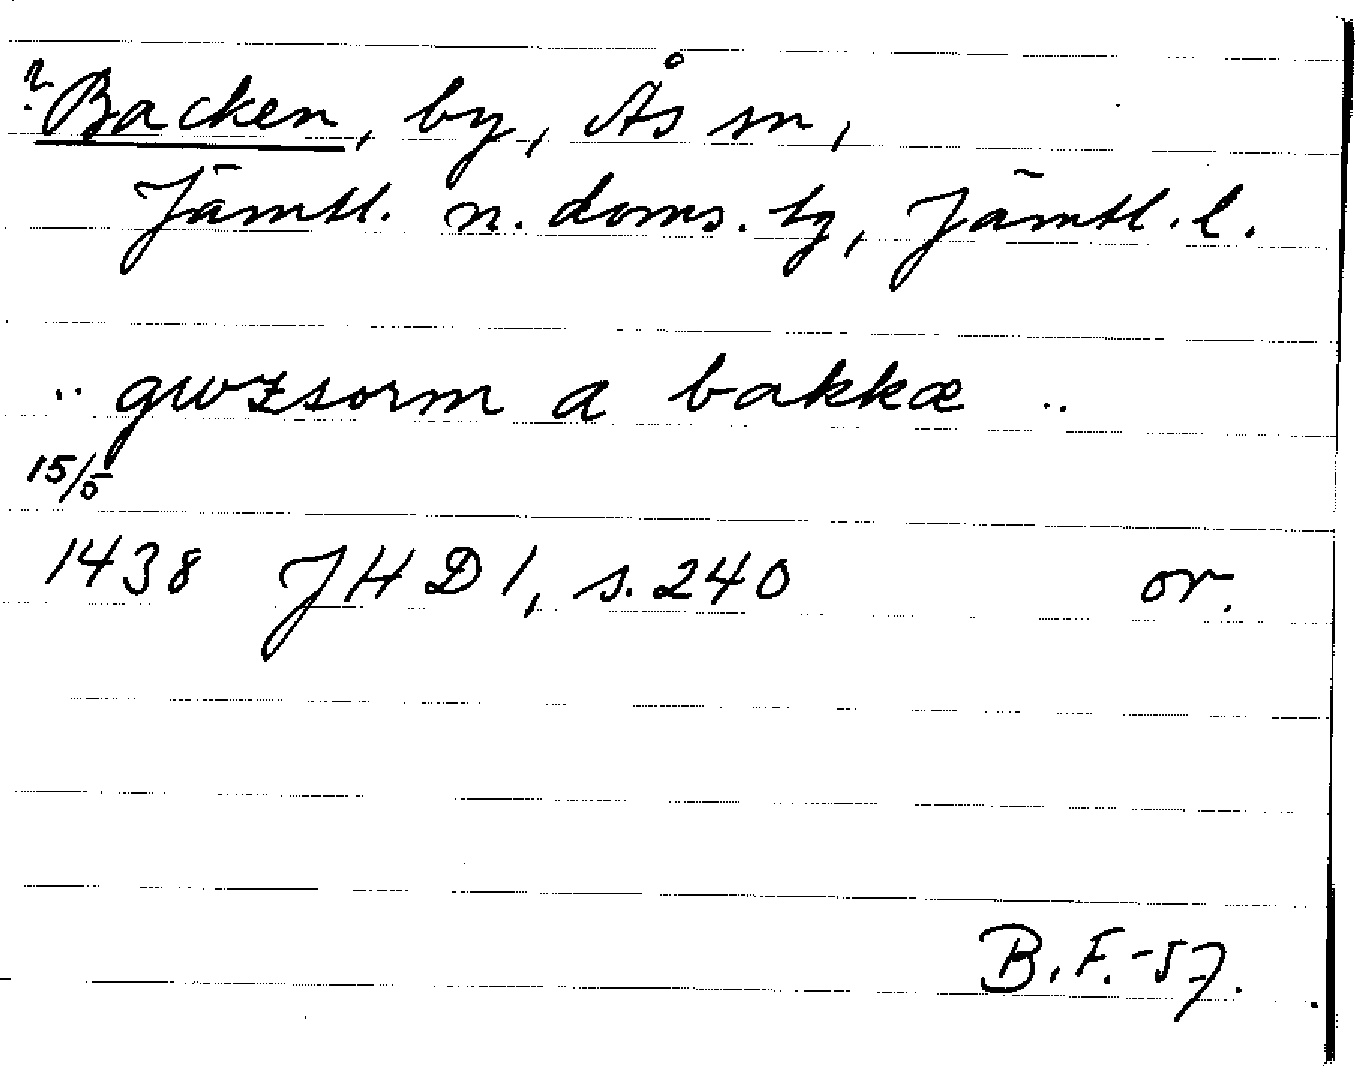 ?Backen, by, Ås sn,
Jämtl. n. doms. tg, Jämtl. l.
.. gwzsorm a bakkæ ..
15/5
1438 JHD 1, s. 240 or.
B. F. -57.